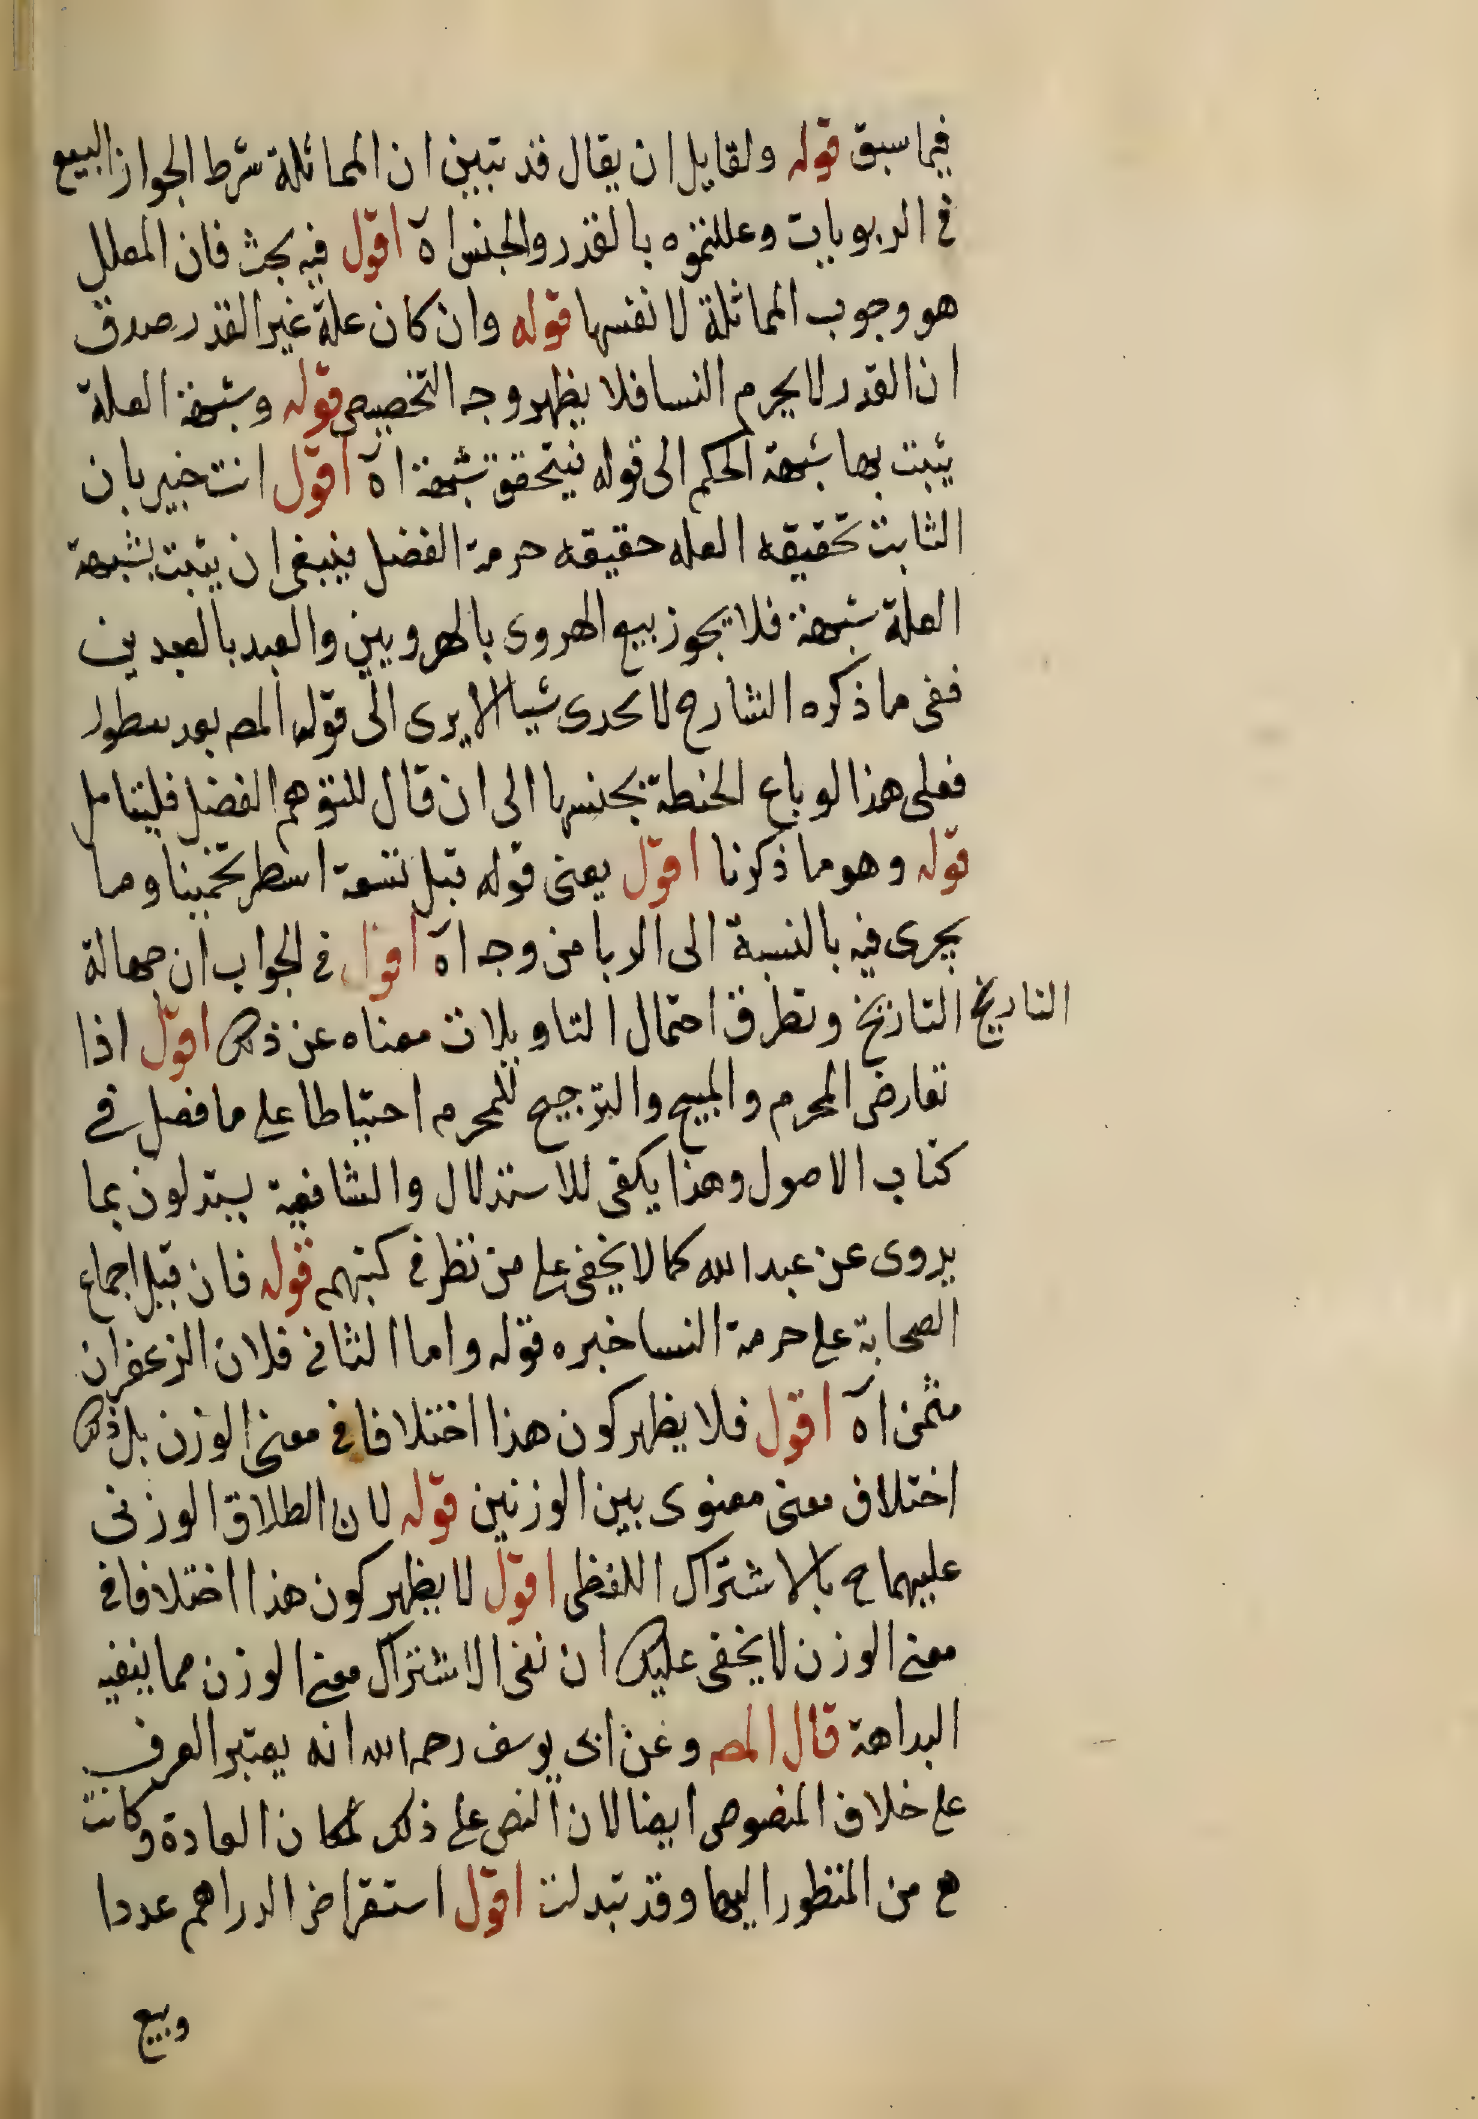 فيما سبق قوله ولقايل ان يقال قد تبين ان المماثلة شرط الجواز البيع
في الربويات وعللتموه بالقدر والجنس اه اقول فيه بحث فان المعلل
هو وجوب المماثلة لا نفسها قوله وان كان علة غير القدر صدق
ان القدر لا يحرم النسا فلا يظهر وجه التخصيص قوله وشبهة العلة
يثبت بها شبهة الحكم الى قوله فيتحقق شبهة اه اقول انت خبير بان
الثابت بحقيقه العله حقيقه حرمة الفضل ينبغي ان يثبت بشبهة
العلة شبهة فلا يجوز بيع الهروى بالهرويين والعبد بالعبدين
ففى ما ذكره الشارح لا يجدى شيا الا يرى الى قوله المصه بعد سطور
فعلى هذا لو باع الحنطة بجنسها الى ان قال للتوهم الفضل فليتامل
قوله وهو ما ذكرنا اقول يعنى قوله قبل تسعة اسطر تخمينا وما
يجرى فيه بالنسبة الى الربا من وجه اه اقول في الجواب ان جهالة
التاريخ التاريخ وتطرق احتمال التاويلات معناه عن ذلك اقول اذا
تعارض المحرم والمبيح والترجيح للمحرم احتياطا على ما فصل في
كتاب الاصول وهذا يكفى للاستدلال والشافعية يستدلون بما
يروى عن عبد الله كما لا يخفى على من نظر في كتبهم قوله فان قيل اجماع
الصحابة على حرمة النسا خبره قوله واما الثانى فلان الزعفران
مثمن اه اقول فلا يظهر كون هذا اختلافا في معنى الوزن بل ذلك
اختلاف معنى معنوى بين الوزنين قوله لان اطلاق الوزنى
عليهما ح بالاشتراك اللفظى اقول لا يظهر كون هذا اختلافا في
معنى الوزن لا يخفى عليك ان نفى الاشتراك معنى الوزن مما ينفيه
البداهة قال المصه وعن ابى يوسف رحمه الله انه يعتبر العرف
على خلاف المنصوص ايضا لان النص على ذلك لمكان العادة وكانت
هى من المنظور اليها وقد تبدلت اقول استقراض الدراهم عددا
وبيع